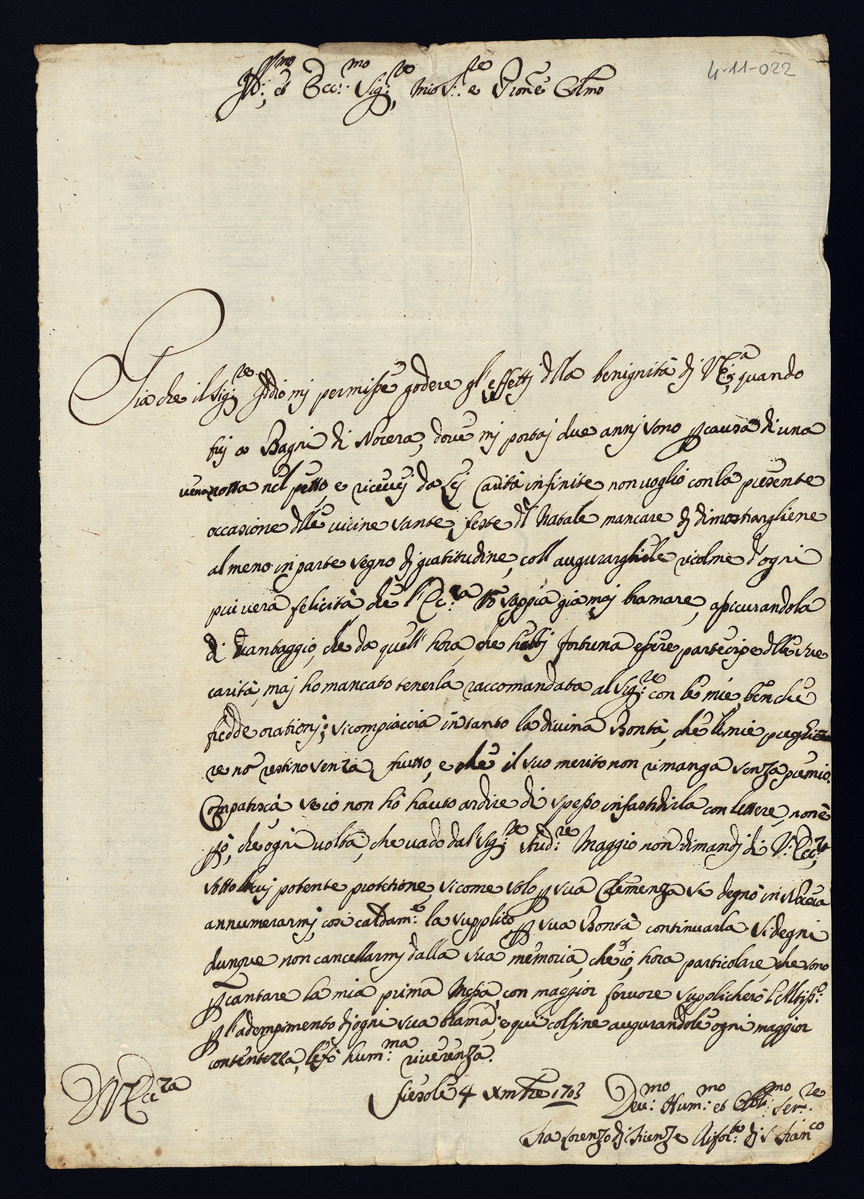 4-11-022
Ill:mo et Ecc:mo Sig:re Mio S:re e Pron̄e Col̄mo
Gia che il Sig:re Iddio mi permisse godere gl'effetti d̄lla benignità di V.E:a, quando
fuj a Bagni di Nocera, dove mi portaj due annj sono p causa di una
vena rotta nel petto, e ricevej da Lej Carità infinite non voglio con la presente
occasione d̄lle vicine sante feste d̄l Natale mancare di dimostrargliene
al meno in parte segno di gratitudine, coll'augurargliele ricolme d'ogni
piu vera felicità che l'Ecc:za V.ra sappia gia maj bramare, assicurandola
di vantaggio, che da quell'hora, che hebbi fortuna essere partecipe d̄lle sue
carità, maj ho mancato tenerla raccomandata al Sig:re con le mie, benche
fredde orationj; si compiaccia in tanto la divina Bontà, che le mie preghie
re nō restino senza frutto, e che il suo merito non rimanga senza premio.
Compatisca, se io non hò hauto ardire di spesso infastidirla con lettere, non è
pò, che ogni volta, che vado dal Sig:re Aud:re Maggio non dimandj di V. Ecc:za
sotto la cuj potente protetione si come solo p sua Clemenza si degnò in Nocera
annumerarmj, così caldam:te la supplico p sua Bontà continuarla si degni
dunque non cancellarmj dalla sua memoria, che io, hora particolare, che sono
p cantare la mia prima Messa, con maggior fervore supplicherò l'Altiss:o
p l'adempimento di ogni sua brama; e qui col fine augurandole ogni maggior
contentezza, le fò hum:ma riverenza.
V. Ecc:za
Fiesole 4 Xmbre 1703
Dev:mo Hum:mo et Obbl:mo Ser:re
Fra Lorenzo di Firenze Rifor:to di S. Fran:co